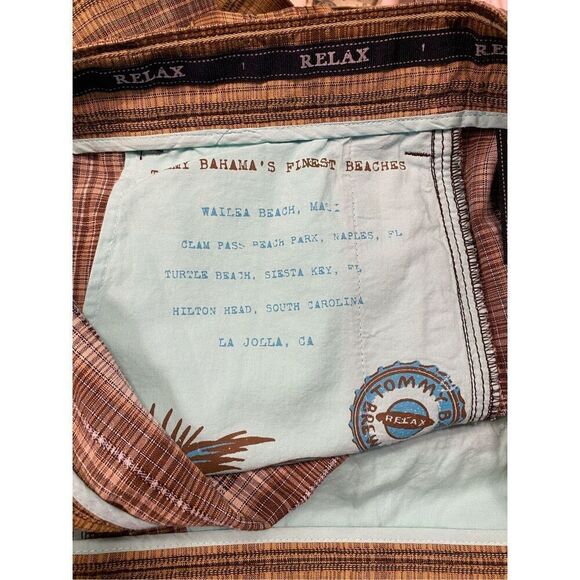 RELAX RELAX
TOMMY BAHAMA'S FINEST BEACHES
WAILEA BEACH, MAUI
CLAM PASS BEACH PARK, NAPLES, FL
TURTLE BEACH, SIESTA KEY, FL
HILTON HEAD, SOUTH CAROLINA
LA JOLLA, CA
TOMMY BA
RELAX
BREW